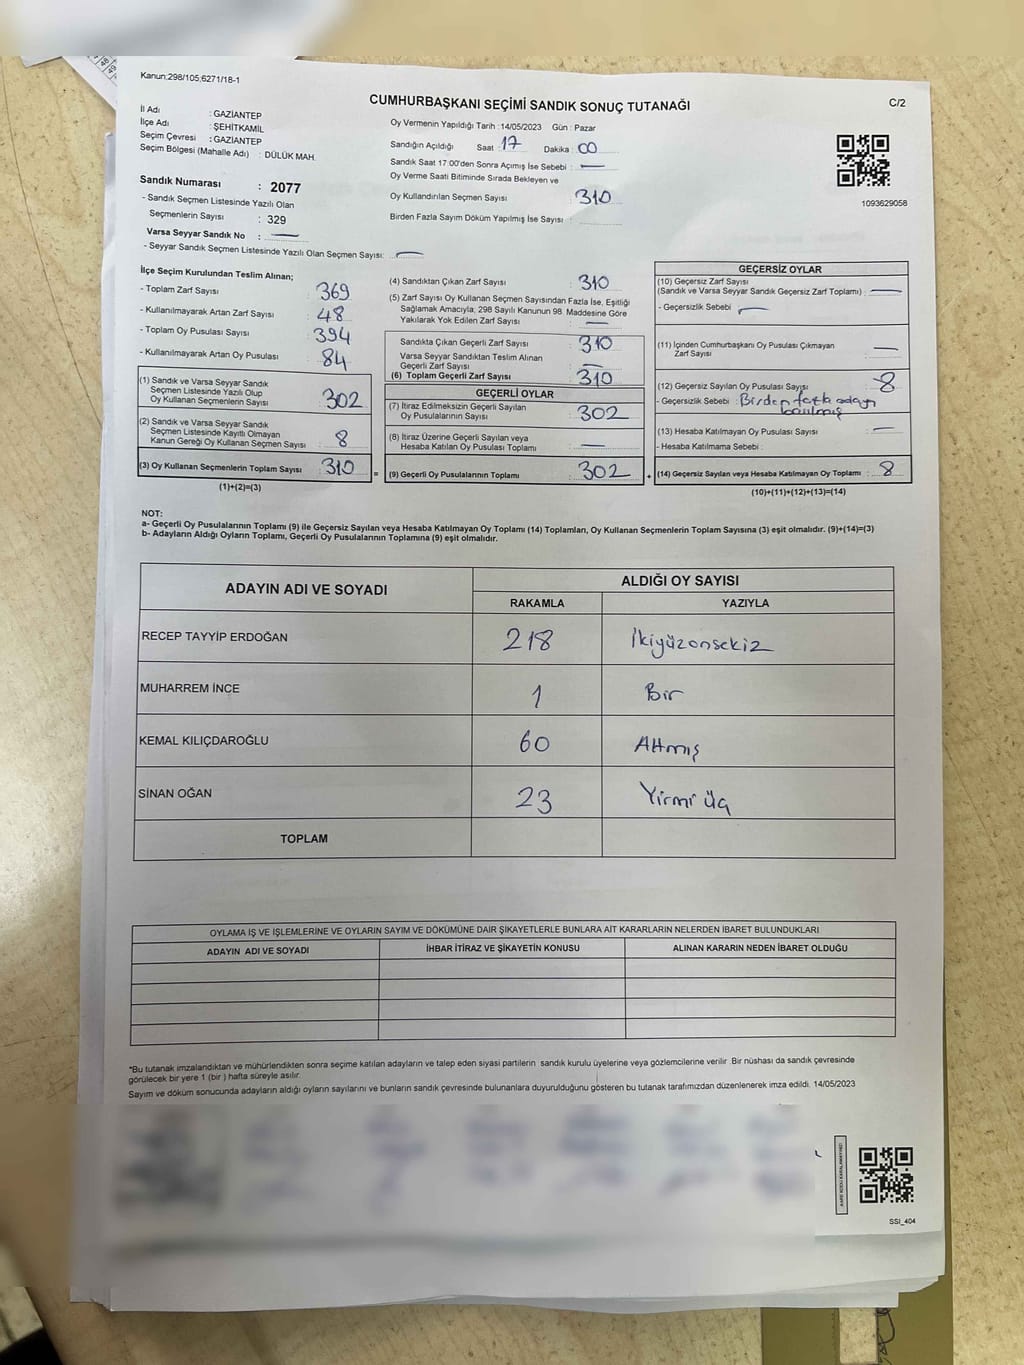 Kanun:298/105;6271/18-1
CUMHURBAŞKANI SEÇİMİ SANDIK SONUÇ TUTANAĞI
C/2
İl Adı : GAZİANTEP
İlçe Adı : ŞEHİTKAMİL
Seçim Çevresi : GAZİANTEP
Seçim Bölgesi (Mahalle Adı) : DÜLÜK MAH.
Sandık Numarası : 2077
- Sandık Seçmen Listesinde Yazılı Olan
Seçmenlerin Sayısı : 329
Varsa Seyyar Sandık No : —
- Seyyar Sandık Seçmen Listesinde Yazılı Olan Seçmen Sayısı: —
Oy Vermenin Yapıldığı Tarih :14/05/2023 Gün : Pazar
Sandığın Açıldığı Saat : 17 Dakika : 00
Sandık Saat 17:00'den Sonra Açımış İse Sebebi : —
Oy Verme Saati Bitiminde Sırada Bekleyen ve
Oy Kullandırılan Seçmen Sayısı : 310
Birden Fazla Sayım Döküm Yapılmış İse Sayısı :
1093629058
İlçe Seçim Kurulundan Teslim Alınan;
- Toplam Zarf Sayısı : 369
- Kullanılmayarak Artan Zarf Sayısı : 48
- Toplam Oy Pusulası Sayısı : 394
- Kullanılmayarak Artan Oy Pusulası : 84
(1) Sandık ve Varsa Seyyar Sandık
Seçmen Listesinde Yazılı Olup
Oy Kullanan Seçmenlerin Sayısı : 302
(2) Sandık ve Varsa Seyyar Sandık
Seçmen Listesinde Kayıtlı Olmayan
Kanun Gereği Oy Kullanan Seçmen Sayısı : 8
(3) Oy Kullanan Seçmenlerin Toplam Sayısı : 310
(1)+(2)=(3)
(4) Sandıktan Çıkan Zarf Sayısı : 310
(5) Zarf Sayısı Oy Kullanan Seçmen Sayısından Fazla İse, Eşitliği
Sağlamak Amacıyla; 298 Sayılı Kanunun 98 Maddesine Göre
Yakılarak Yok Edilen Zarf Sayısı : —
Sandıkta Çıkan Geçerli Zarf Sayısı : 310
Varsa Seyyar Sandıktan Teslim Alınan
Geçerli Zarf Sayısı : —
(6) Toplam Geçerli Zarf Sayısı : 310
GEÇERLİ OYLAR
(7) İtiraz Edilmeksizin Geçerli Sayılan
Oy Pusulalarının Sayısı : 302
(8) İtiraz Üzerine Geçerli Sayılan veya
Hesaba Katılan Oy Pusulası Toplamı : —
= (9) Geçerli Oy Pusulalarının Toplamı : 302
GEÇERSİZ OYLAR
(10) Geçersiz Zarf Sayısı
(Sandık ve Varsa Seyyar Sandık Geçersiz Zarf Toplamı) : —
- Geçersizlik Sebebi : —
(11) İçinden Cumhurbaşkanı Oy Pusulası Çıkmayan
Zarf Sayısı : —
(12) Geçersiz Sayılan Oy Pusulası Sayısı : 8
- Geçersizlik Sebebi : Birden fazla adayın
basılmış
(13) Hesaba Katılmayan Oy Pusulası Sayısı : —
- Hesaba Katılmama Sebebi :
+ (14) Geçersiz Sayılan veya Hesaba Katılmayan Oy Toplamı : 8
(10)+(11)+(12)+(13)=(14)
NOT:
a- Geçerli Oy Pusulalarının Toplamı (9) ile Geçersiz Sayılan veya Hesaba Katılmayan Oy Toplamı (14) Toplamları, Oy Kullanan Seçmenlerin Toplam Sayısına (3) eşit olmalıdır. (9)+(14)=(3)
b- Adayların Aldığı Oyların Toplamı, Geçerli Oy Pusulalarının Toplamına (9) eşit olmalıdır.
ADAYIN ADI VE SOYADI ALDIĞI OY SAYISI
RAKAMLA YAZIYLA
RECEP TAYYİP ERDOĞAN 218 İkiyüzonsekiz
MUHARREM İNCE 1 Bir
KEMAL KILIÇDAROĞLU 60 Altmış
SİNAN OĞAN 23 Yirmi üç
TOPLAM
OYLAMA İŞ VE İŞLEMLERİNE VE OYLARIN SAYIM VE DÖKÜMÜNE DAİR ŞİKAYETLERLE BUNLARA AİT KARARLARIN NELERDEN İBARET BULUNDUKLARI
ADAYIN ADI VE SOYADI İHBAR İTİRAZ VE ŞİKAYETİN KONUSU ALINAN KARARIN NEDEN İBARET OLDUĞU
*Bu tutanak imzalandıktan ve mühürlendikten sonra seçime katılan adayların ve talep eden siyasi partilerin sandık kurulu üyelerine veya gözlemcilerine verilir. Bir nüshası da sandık çevresinde
görülecek bir yere 1 (bir ) hafta süreyle asılır.
Sayım ve döküm sonucunda adayların aldığı oyların sayılarını ve bunların sandık çevresinde bulunanlara duyurulduğunu gösteren bu tutanak tarafımızdan düzenlenerek imza edildi. 14/05/2023
SSI_404